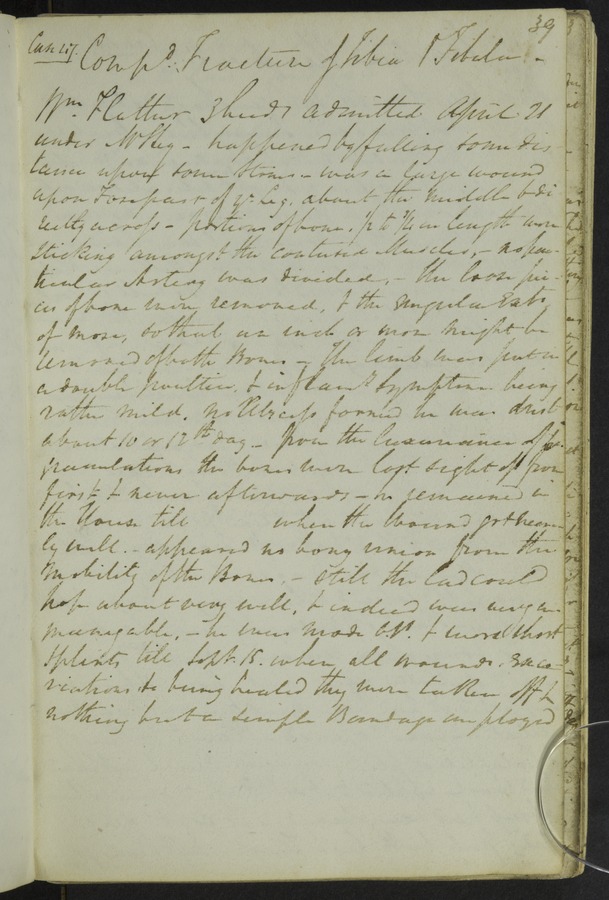 39
Case 41. Comp.d Fracture of Tibia & Fibula -
Wm. Flather admitted April 21
under Mr Hey - happened by falling some dis
tance upon some stones - was a large wound
upon forepart of ye Leg, about the middle & di
rectly across - portions of bone, in length were
sticking amongst the contused Muscles, - no par-
ticular Artery was divided, - the loose pie-
ces of bone were removed, & the angular Ends
of more, so that an inch or more might be
removed of both Bones - The limb was put in
a double poultice, & inflam.y symptoms being
rather mild, no Abscess formed he was drest
about 10 or 12th day - from the luxuriance of ye
granulations the bones were lost sight of from
first & never afterwards - he remained in
the House till when the wound got near
ly well. - appeared no bony union from the
mobility of the Bones, - still the lad could
hop about very well, & indeed was very
manageable, - he was made OP. & wore short
splints till Sept. 15. when all wounds. Exco
riations &c being healed they were taken off &
nothing but a simple Bandage employed